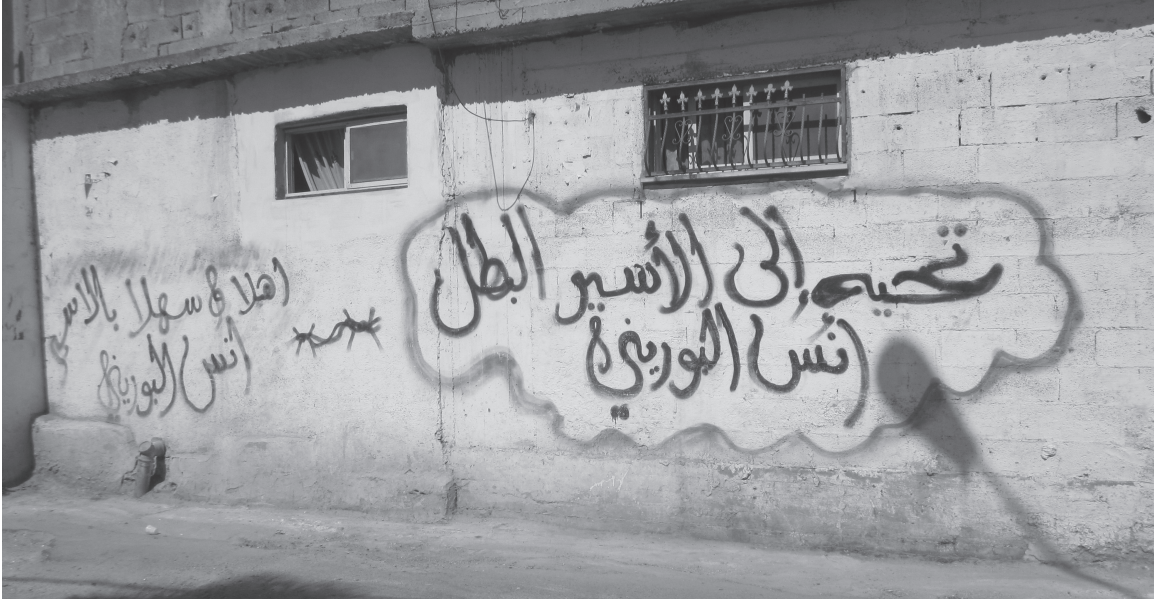 تحيه إلى الأسير البطل
أنس البوريني
اهلا و سهلا بالاسير
انس البوريني